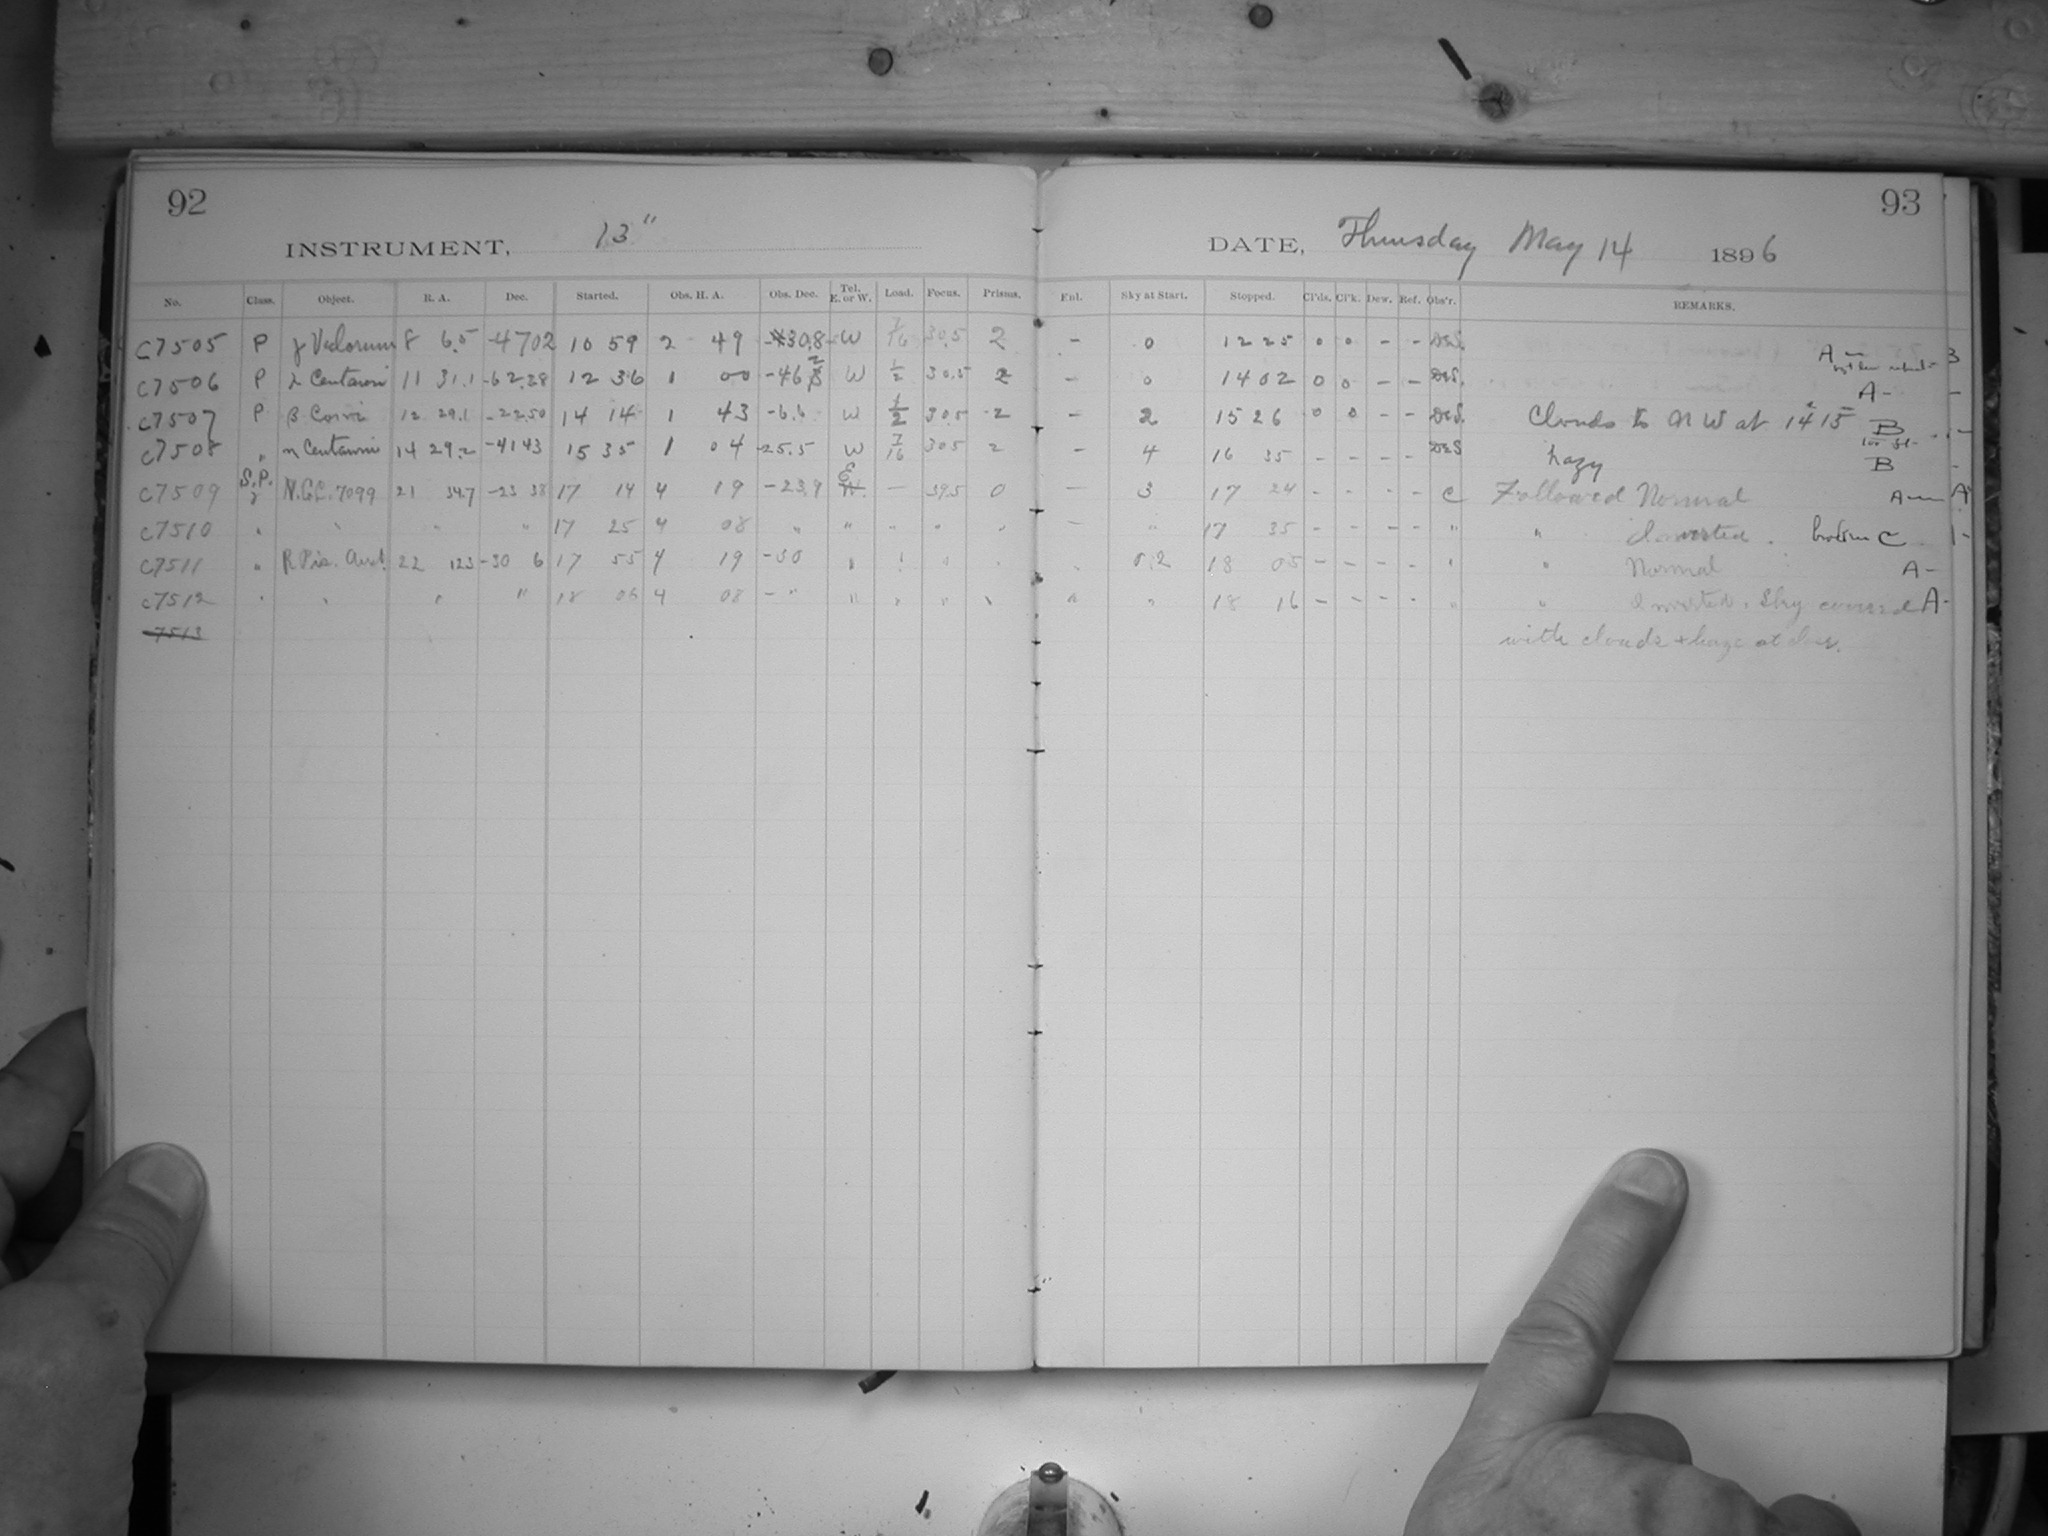 92
INSTRUMENT, 13"
No. Class. Object. R. A. Dec. Started. Obs. H. A. Obs. Dec. Tel. E. or W. Load. Focus. Prisms.
C7505 P γ Velorum 8 6.5 -4702 10 59 2 49 -30.8 W 7/16 30.5 2
C7506 P λ Centauri 11 31.1 -62.28 12 36 1 00 -46.2 W 1/2 30.5 2
C7507 P β Corvi 12 29.1 -22.50 14 14 1 43 -6.6 W 1/2 30.5 2
C7508 " η Centauri 14 29.2 -41 43 15 35 1 04 -25.5 W 7/16 30.5 2
C7509 S.P. 2 N.G.C. 7099 21 34.7 -23 38 17 14 4 19 -23.9 E W. — 39.5 0
C7510 " " " " 17 25 4 08 " " " " "
C7511 " R Pis. Aust. 22 12.3 -30 6 17 55 4 19 -30 " " " "
C7512 " " " " 18 06 4 08 - " " " " "
C7513
93
DATE, Thursday May 14 1896
Enl. Sky at Start. Stopped. Cl'ds. Cl'k. Dew. Ref. Obs'r. REMARKS.
- 0 12 25 0 0 - - DeS. A-
- 0 14 02 0 0 - - DeS. A-
- 2 15 26 0 0 - - DeS. Clouds to N W at 14 15 B
- 4 16 35 - - - - DeS hazy B
- 3 17 24 - - - - C Followed Normal A-
- " 17 35 - - - - " " Inverted. C
" 0.2 18 05 - - - - " " Normal A-
" " 18 16 - - - - " " Inverted. Sky covered A-
with clouds + haze at